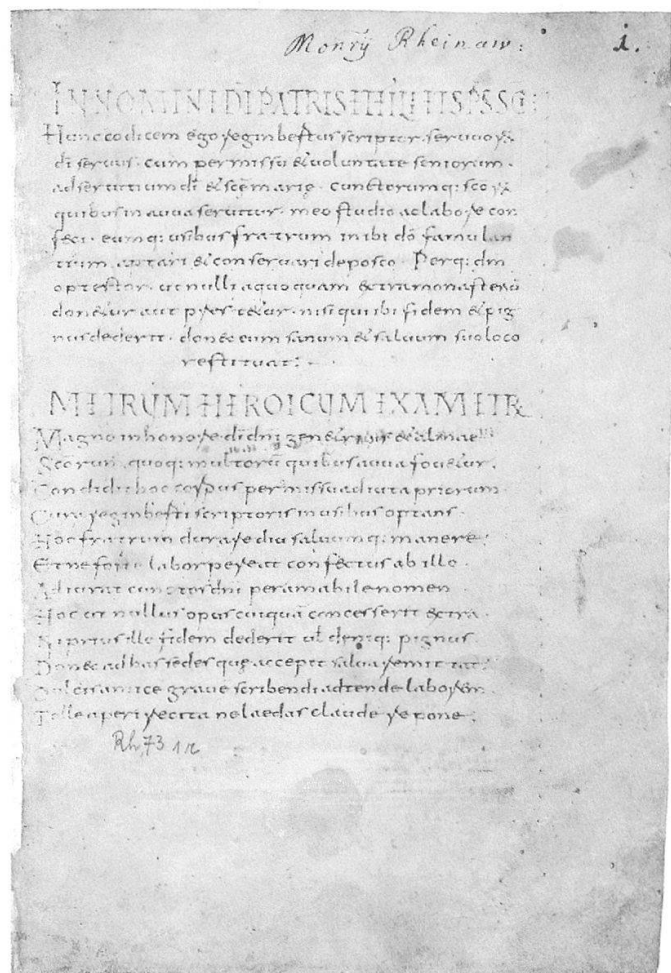 Monrÿ Rheinaw:
1.
IN NOMINE DI PATRIS ET FILII ET SPS SCI:
Hunc codicem ego reginbertus scriptor. seruorū
di seruus. cum permissu et uoluntate seniorum.
ad seruitium di et scę marię. cunctorumq: scorū
quibus in auua seruitur. meo studio ac labore con
feci. eumq: usibus fratrum inibi dō famulan
tium aptari et conseruari deposco. Perq: dm
optestor. ut nulli a quoquam extra monasteriū
donetur aut prestetur. nisi qui ibi fidem et pig
nus dederit. donec eum sanum et saluum suo loco
restituat:
METRUM HEROICUM EXAMETR
Magno in honore di dni genetricis et almae
Scorum quoq: multorū quibus auua fouetur.
Condidit hoc corpus permissu adiuta priorum
Cura reginberti scriptoris in usibus optans
Hoc fratrum durare diu saluumq: manere.
Et ne forte labor pereat confectus ab illo
Adiurat cunctos dni per amabile nomen
Hoc ut nullus opus cuiquā concesserit extra.
Ni prius ille fidem dederit ul deniq: pignus
Donec ad has sedes que accepit salua remittat.
Dulcis amice graue scribendi adtende laborem
Tolle aperi recita ne laedas claude repone.
Rh 73 1r